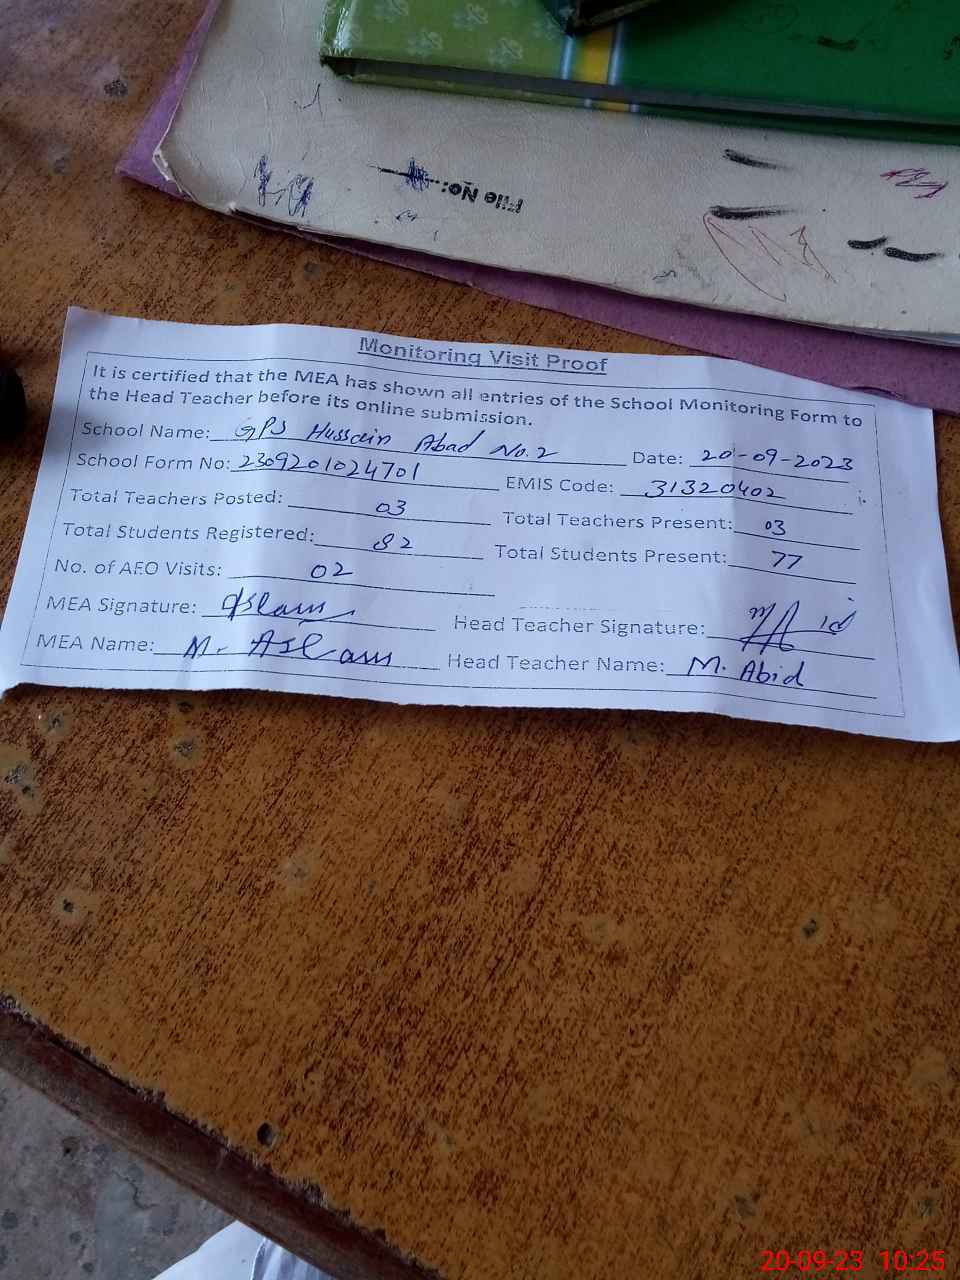 File No:
Monitoring Visit Proof
It is certified that the MEA has shown all entries of the School Monitoring Form to
the Head Teacher before its online submission.
School Name: GPS Hussain Abad No.2 Date: 20-09-2023
School Form No: 2309201024701 EMIS Code: 31320402
Total Teachers Posted: 03 Total Teachers Present: 03
Total Students Registered: 82 Total Students Present: 77
No. of AEO Visits: 02
MEA Signature: Aslam Head Teacher Signature:
MEA Name: M. Aslam Head Teacher Name: M. Abid
20-09-23 10:25